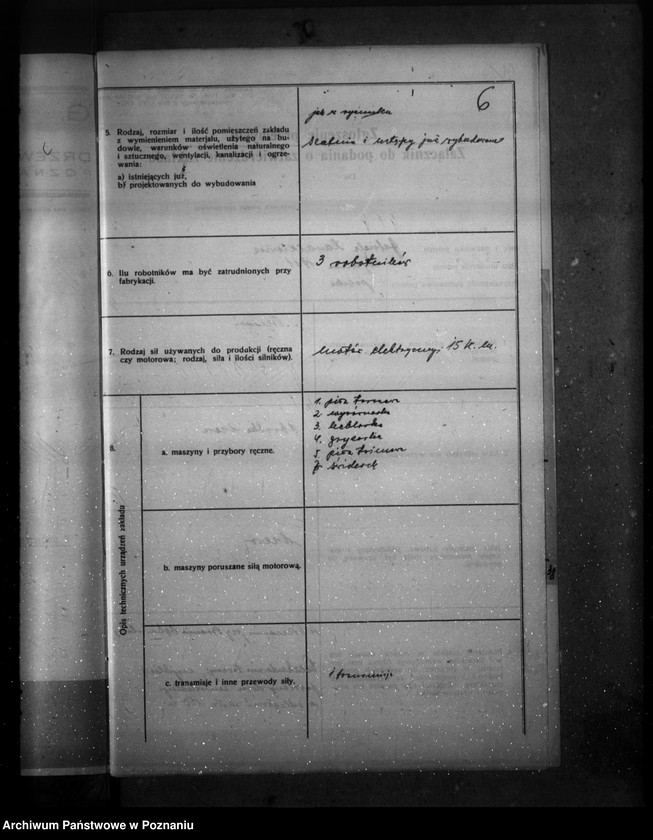 6
5. Rodzaj, rozmiar i ilość pomieszczeń zakładu
z wymienieniem materjału, użytego na bu-
dowie, warunków oświetlenia naturalnego
i sztucznego, wentylacji, kanalizacji i ogrze-
wania:
a) istniejących już,
b) projektowanych do wybudowania
jak w rysunku
i ustępy już wybudowane
6. Ilu robotników ma być zatrudnionych przy
fabrykacji.
3 robotników
7. Rodzaj sił używanych do produkcji (ręczna
czy motorowa; rodzaj, siła i ilości silników).
motor elektryczny, 15 K.M.
8.
Opis technicznych urządzeń zakładu
a. maszyny i przybory ręczne.
1. piła tarczowa
2. wyrówniarka
3. heblarka
4. gryzarka
5. piła taśmowa
świderek
b. maszyny poruszane siłą motorową.
c. transmisje i inne przewody siły.
1 transmisja
Archiwum Państwowe w Poznaniu